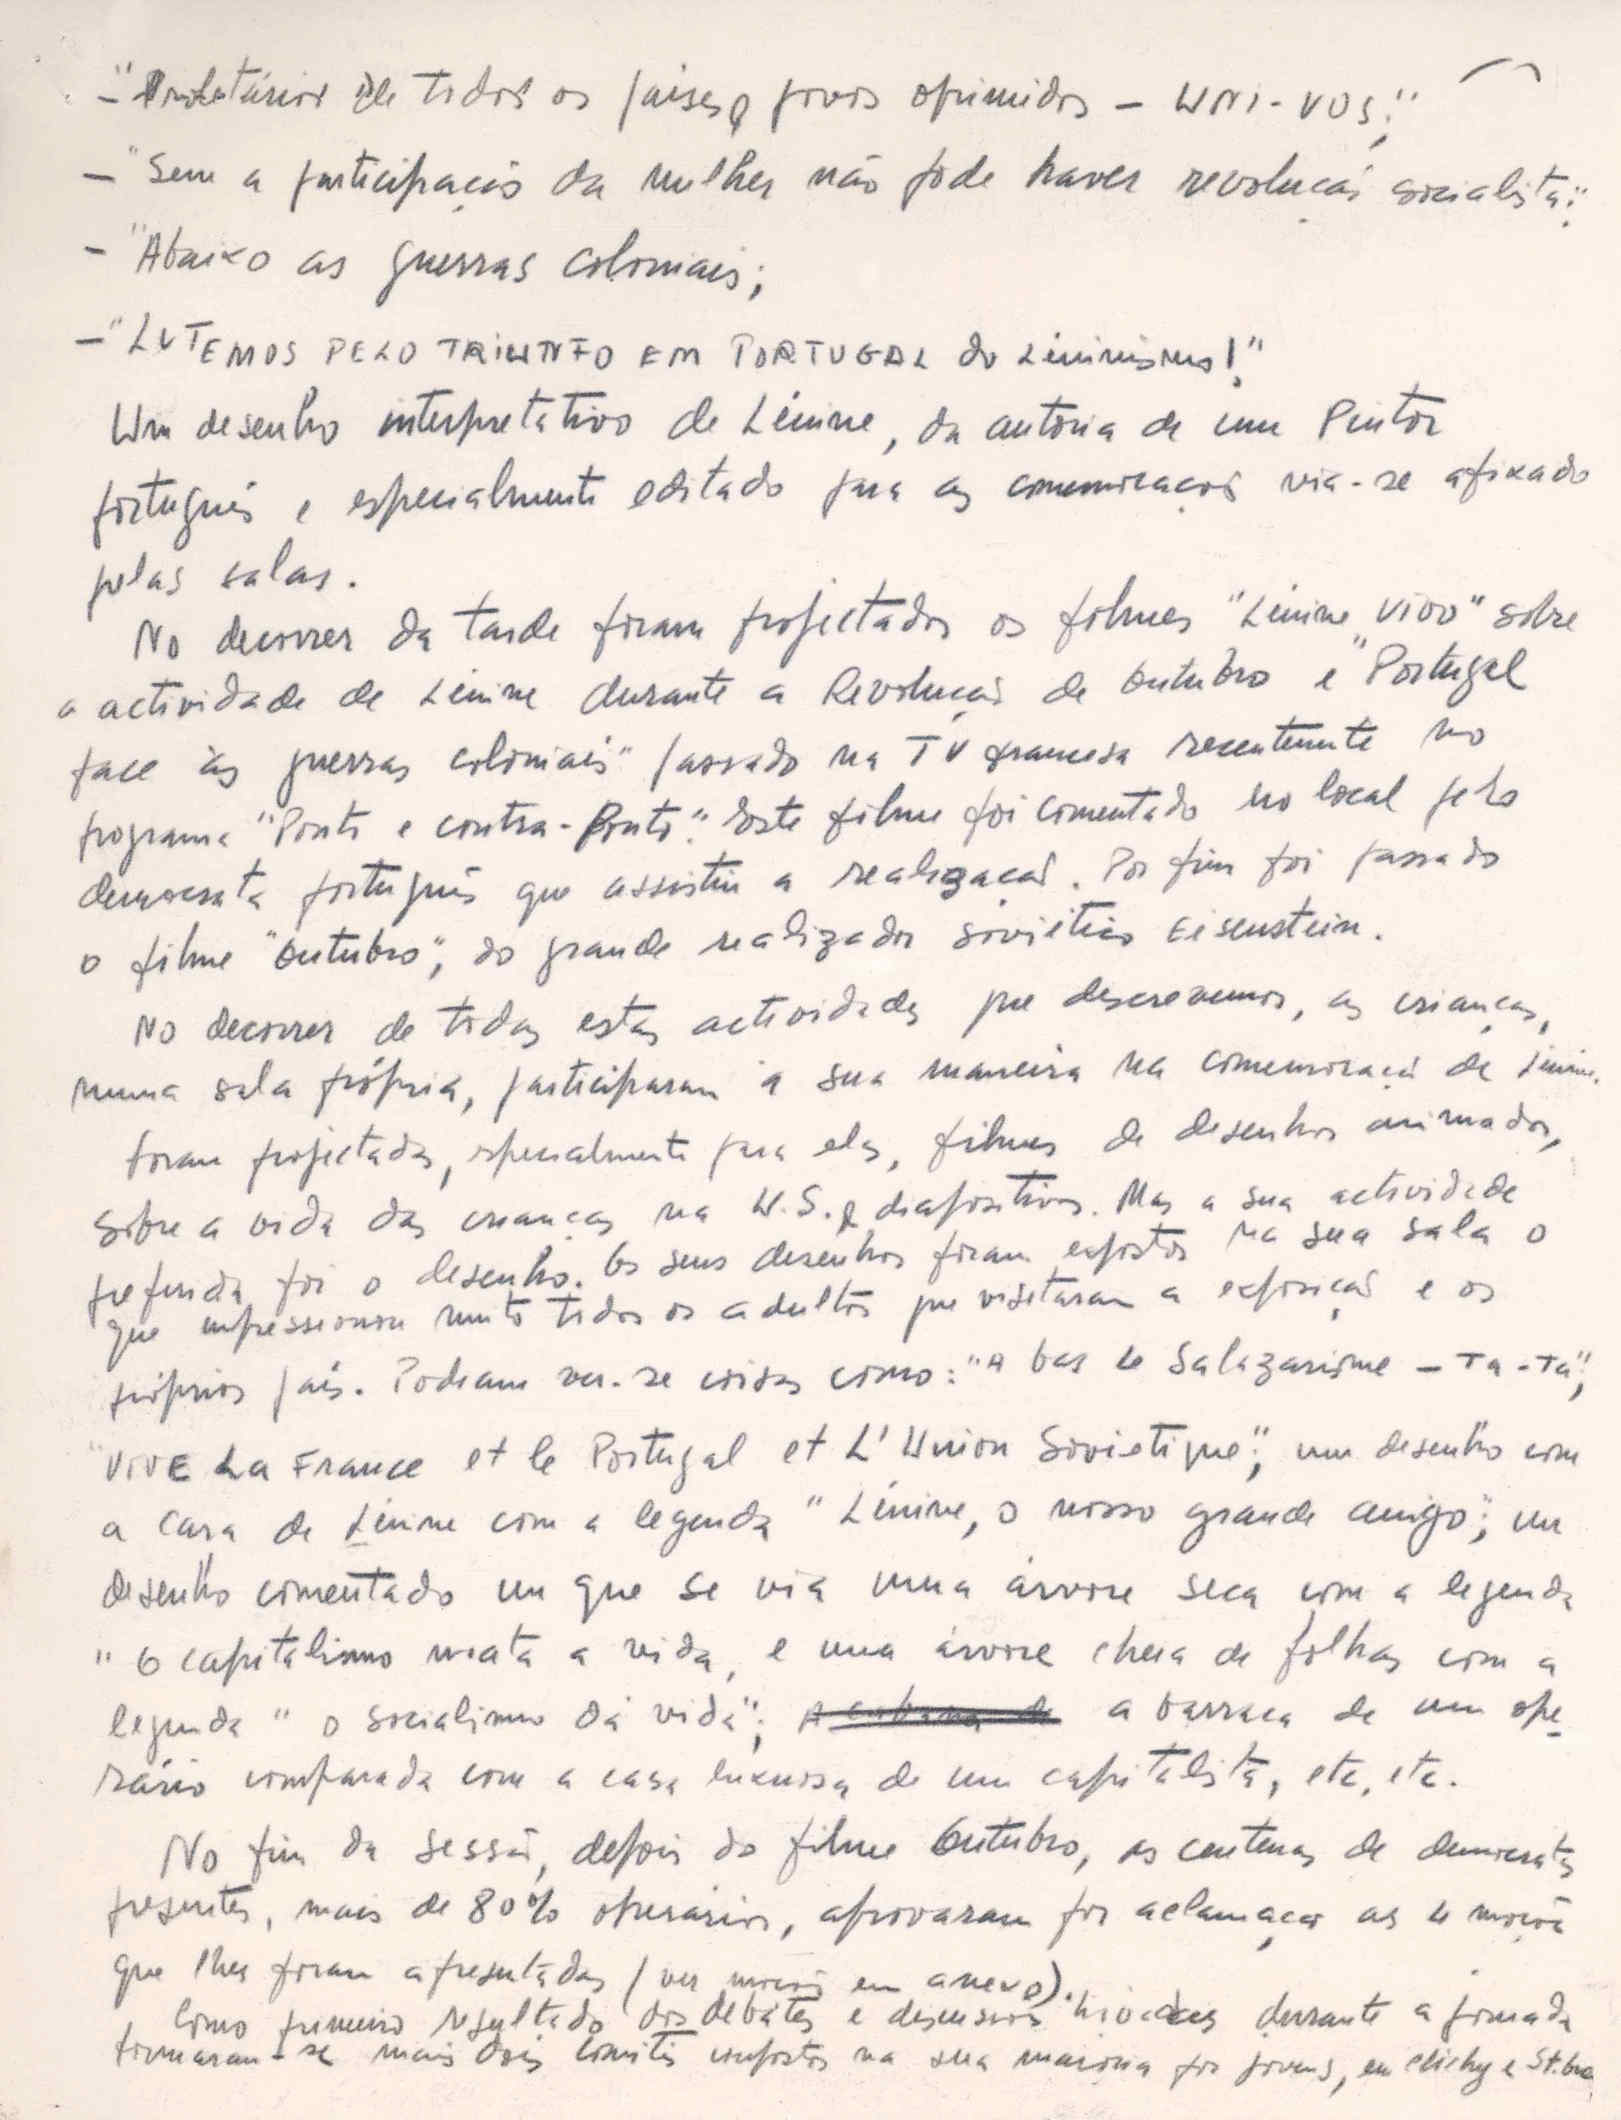 - "Proletários de todos os países e povos oprimidos - UNI-VOS;"
- "Sem a participação da mulher não pode haver revolução socialista;"
- "Abaixo as guerras coloniais;
- "LUTEMOS PELO TRIUNFO EM PORTUGAL do Leninismo!"
Um desenho interpretativo de Lénine, da autoria de um Pintor
português e especialmente editado para as comemorações via-se afixado
pelas salas.
No decorrer da tarde foram projectados os filmes "Lénine vivo" sobre
a actividade de Lénine durante a Revolução de Outubro e "Portugal
face às guerras coloniais" passado na TV francesa recentemente no
programa "Ponto e contra-Ponto". Este filme foi comentado no local pelo
democrata português que assistiu a realização. Por fim foi passado
o filme "Outubro", do grande realizador soviético Eisenstein.
No decorrer de todas estas actividades que descrevemos, as crianças,
numa sala própria, participaram à sua maneira na comemoração de Lénine.
Foram projectados, especialmente para elas, filmes de desenhos animados,
sobre a vida das crianças na U.S. e diapositivos. Mas a sua actividade
preferida foi o desenho. Os seus desenhos foram expostos na sua sala o
que impressionou muito todos os adultos que visitaram a exposição e os
próprios pais. Podiam ver-se coisas como: "A bas le Salazarisme - Ta-Ta",
"VIVE La France et le Portugal et L'Union Sovietique"; um desenho com
a cara de Lénine com a legenda "Lénine, o nosso grande amigo"; um
desenho comentado em que se via uma árvore seca com a legenda
"O capitalismo mata a vida, e uma árvore cheia de folhas com a
legenda "o socialismo dá vida"; a barraca de um ope
rário comparada com a casa luxuosa de um capitalista, etc, etc.
No fim da sessão, depois do filme Outubro, as centenas de democratas
presentes, mais de 80% operários, aprovaram por aclamação as 4 moções
que lhes foram apresentadas (ver moções em anexo).
Como primeiro resultado dos debates e discussões havidas durante a jornada
formaram-se mais dois comités compostos na sua maioria por jovens, em Clichy e